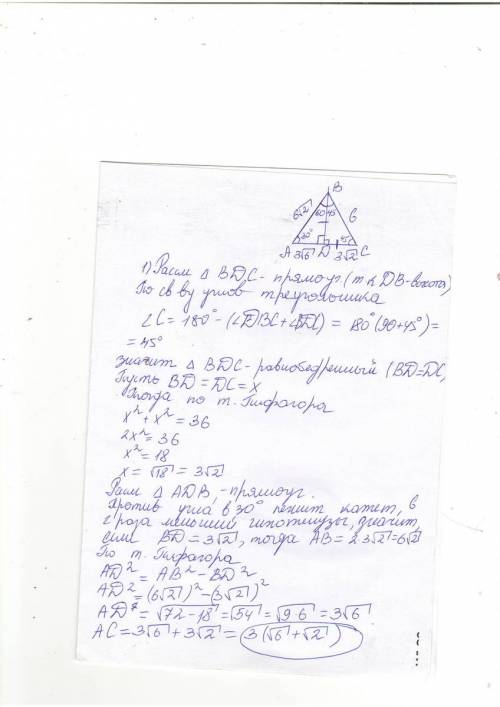 B
6√2 60 45 6
30° 45
A 3√6 D 3√2 C
1) Рассм Δ BDC - прямоуг. (т.к DB - высота)
По св ву углов треугольника
∠C = 180° - (∠DBC + ∠BDC) = 180° (90+45°) =
= 45°
значит Δ BDC - равнобедренный (BD=DC,
Пусть BD = DC = x
Тогда по т. Пифагора
x² + x² = 36
2x² = 36
x² = 18
x = √18 = 3√2
Рассм Δ ADB, - прямоуг.
Против угла в 30° лежит катет, в
2 раза меньший гипотенузы, значит,
если BD = 3√2, тогда AB = 2 3√2 = 6√2
По т. Пифагора
AD² = AB² - BD²
AD² = (6√2)² - (3√2)²
AD = √72 - 18 = √54 = √9·6 = 3√6
AC = 3√6 + 3√2 = 3(√6 + √2)